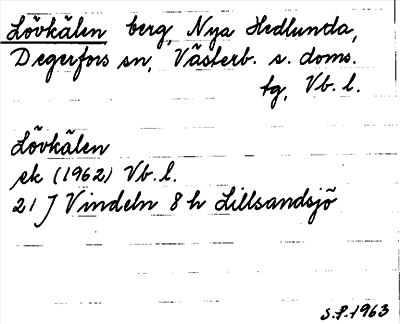 Lövkälen berg, Nya Hedlunda,
Degerfors sn, Västerb. s. doms.
tg, Vb. l.
Lövkälen
ek (1962) Vb. l.
21 J Vindeln 8 h Lillsandsjö
S.P. 1963